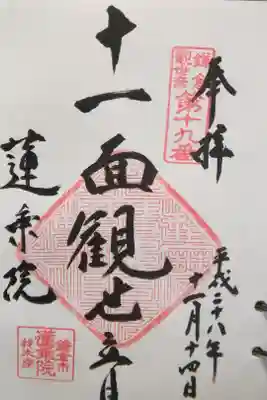 奉拝
平成二十八年
十一月十四日
鎌倉
観世音
第十九番
十一面観世音
蓮乗院
鎌倉市
材木座
蓮乗院